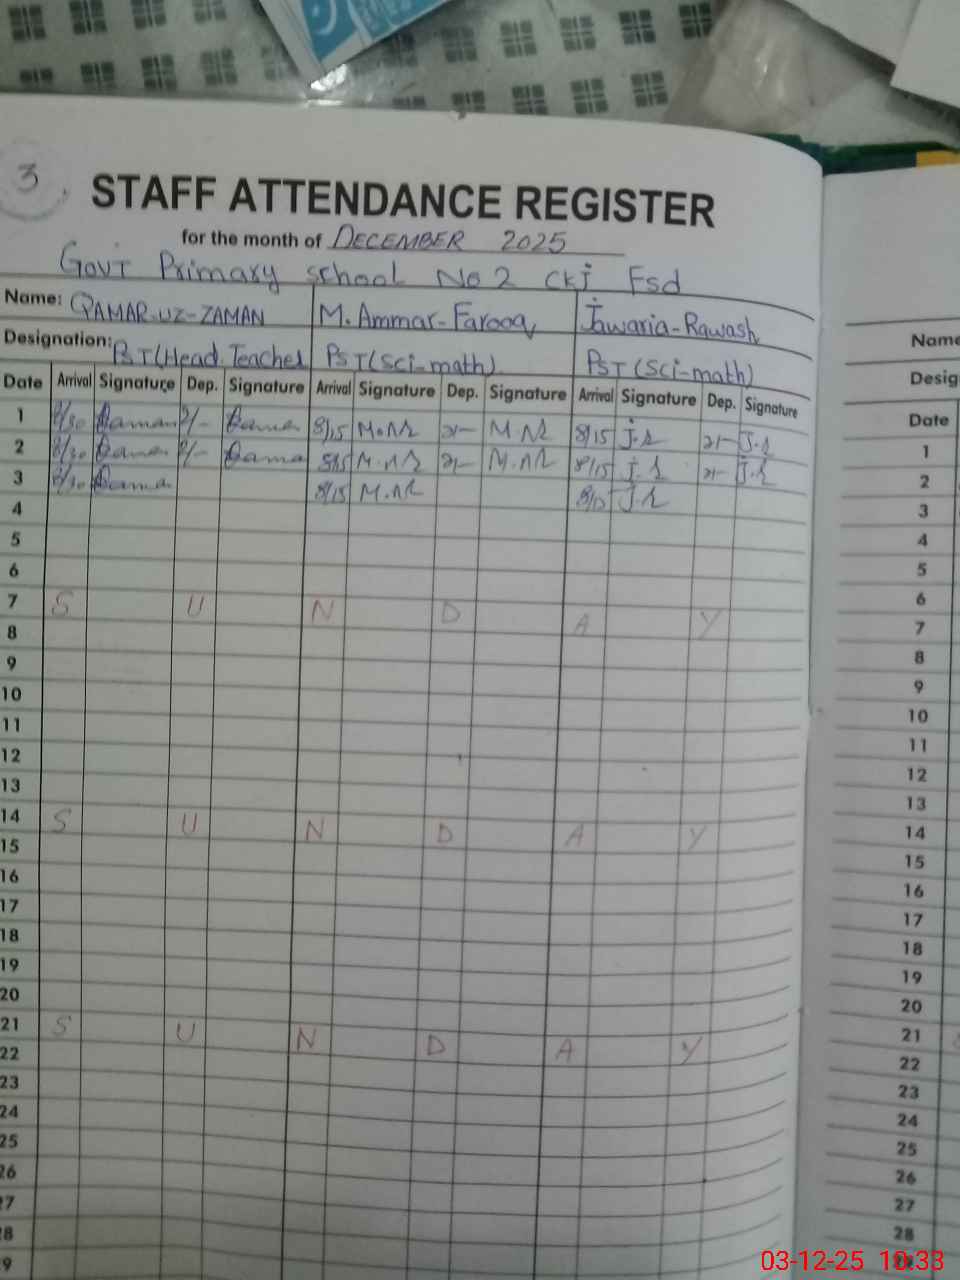 3
STAFF ATTENDANCE REGISTER
for the month of DECEMBER 2025
Govt Primary school No 2 CKJ Fsd
Name: QAMAR-UZ-ZAMAN M. Ammar-Farooq Jawaria-Rawash
Designation: PST(Head Teacher PST(Sci-math) PST(Sci-math)
Date Arrival Signature Dep. Signature Arrival Signature Dep. Signature Arrival Signature Dep. Signature
1 8/30 2/- 8/15 2/- 8/15 2/-
2 8/30 2/- 8/15 2/- 8/15 2/-
3 8/30 8/15 8/15
4
5
6
7 S U N D A Y
8
9
10
11
12
13
14 S U N D A Y
15
16
17
18
19
20
21 S U N D A Y
22
23
24
25
26
27
28
9
Name
Desig
Date
1
2
3
4
5
6
7
8
9
10
11
12
13
14
15
16
17
18
19
20
21
22
23
24
25
26
27
28
03-12-25 10:33